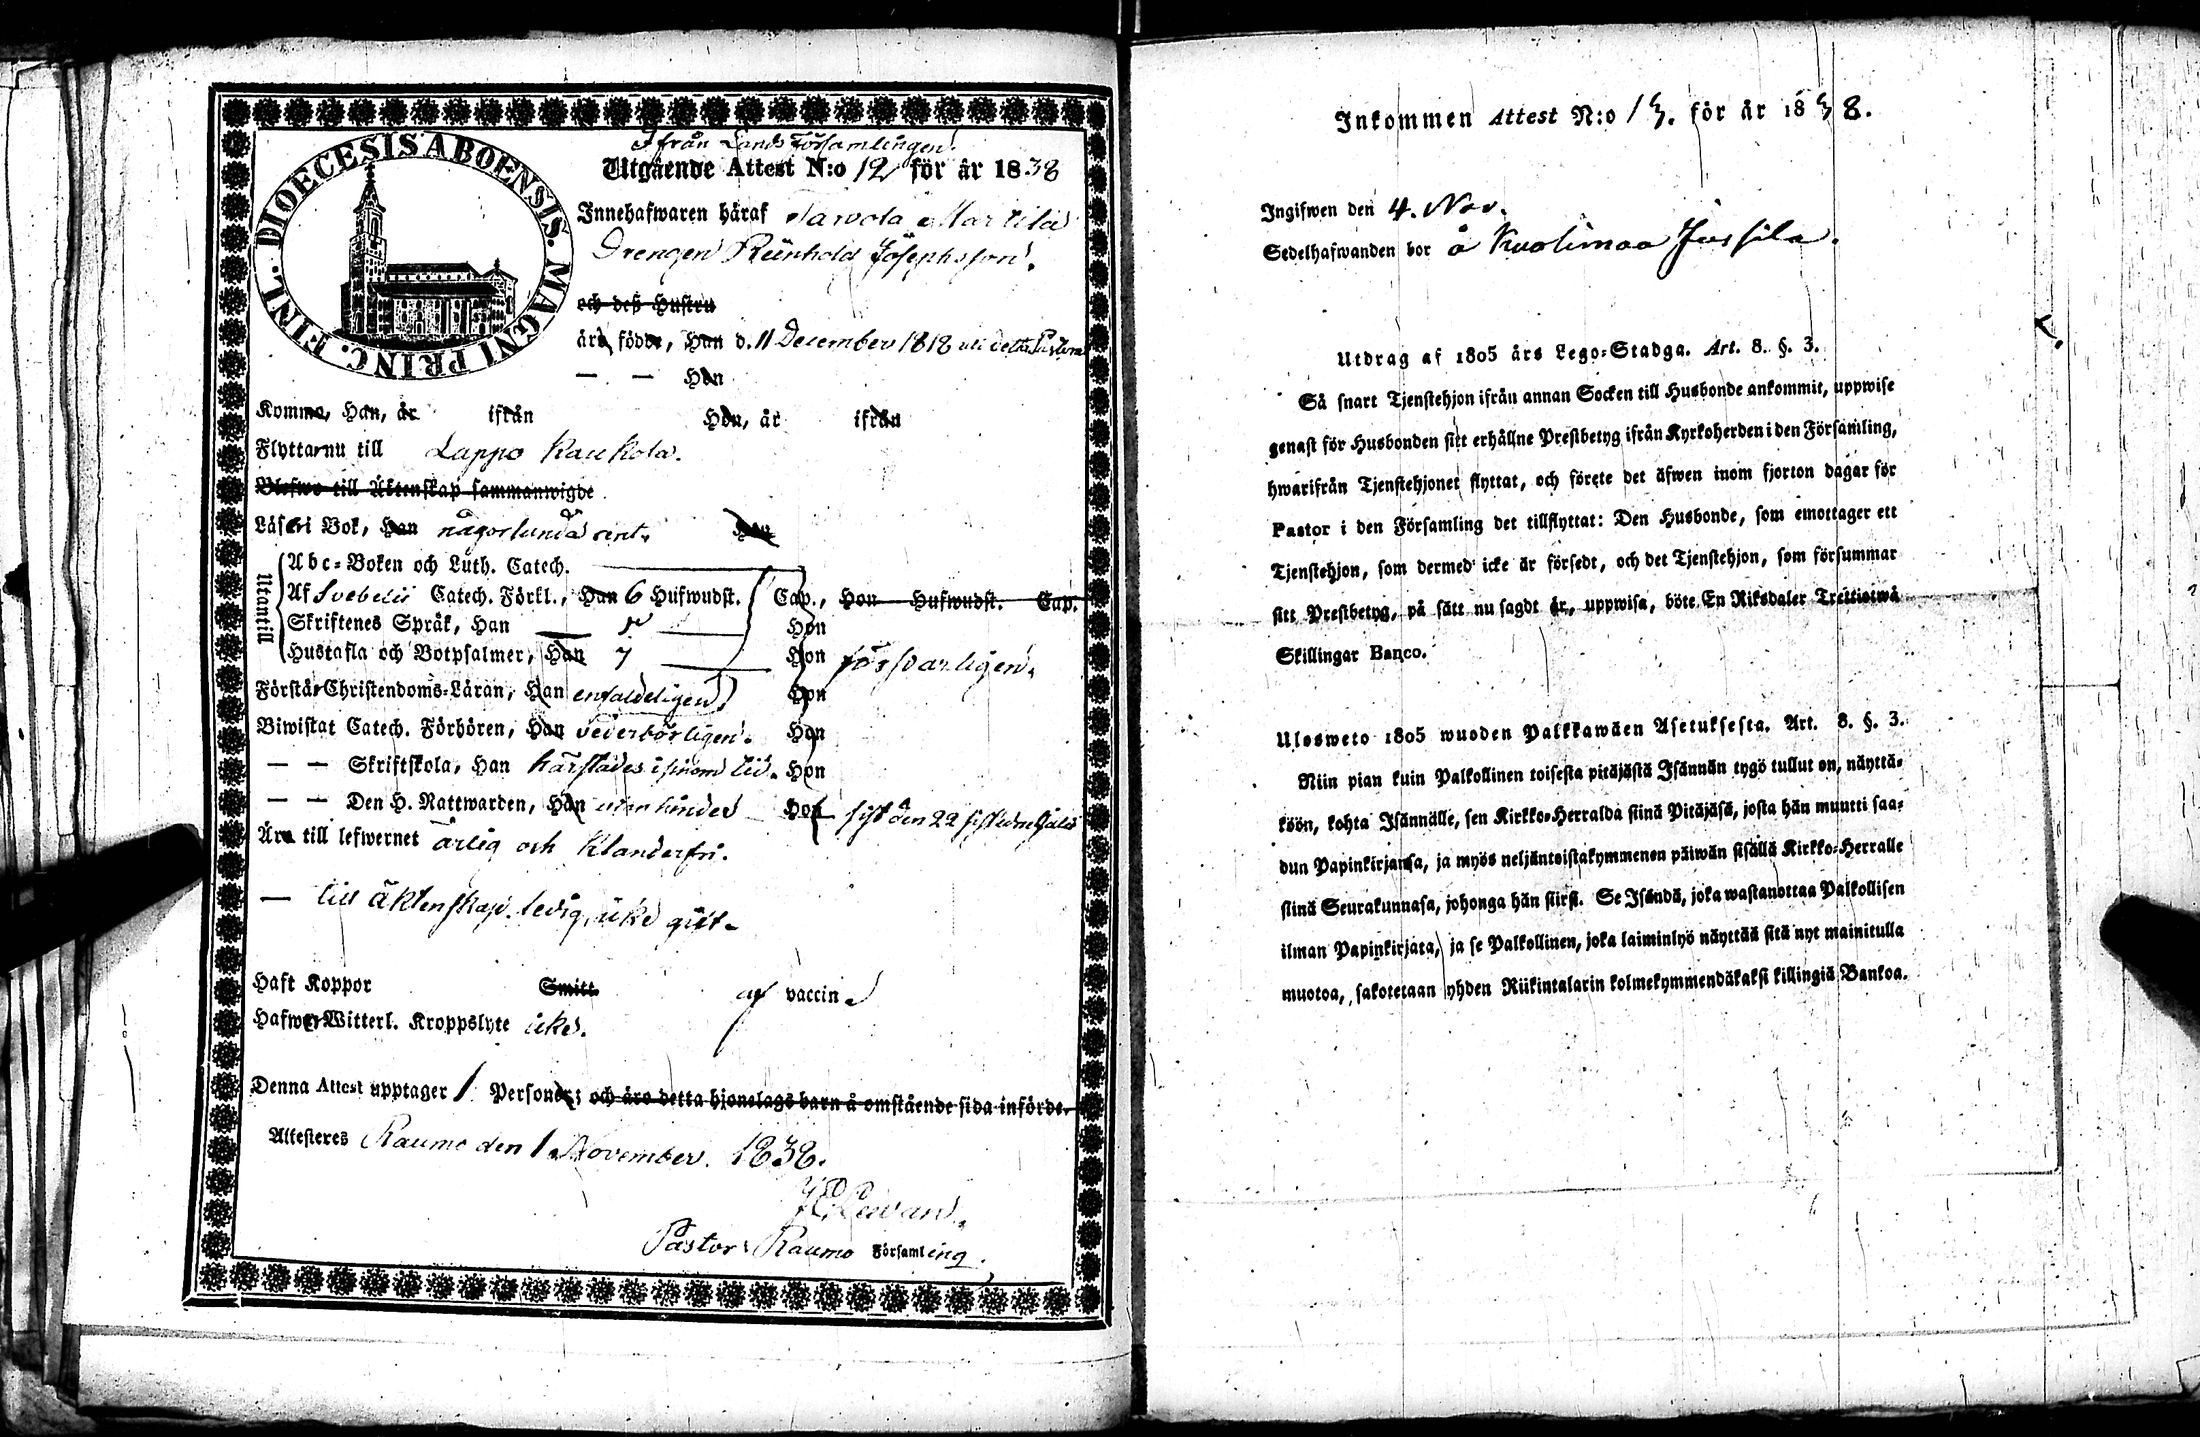 DIOECESIS ABOENSIS. MAGNI PRINC. FINL.
Ifrån Lands Församlingen.
Utgående Attest N:o 12 för år 1838
Innehafwaren häraf Sawola Marttila
Drengen Reinhold Josephsson.
och deß Hustru
äro födde, Han d. 11 December 1818 uti detta Pastorat
— — Hon
Komne, Han, år ifrån Hon, år ifrån
Flyttar nu till Lappo Kaukola.
Blefwo till Äktenskap sammanwigde
Läser i Bok, Han någorlunda rent. Hon
Utantill
Abc-Boken och Luth. Catech.
Af Svebelii Catech. Förkl., Han 6 Hufwudst. Cap., Hon Hufwudst. Cap.
Skriftenes Språk, Han Hon
Hustafla och Botpsalmer, Han 7 Hon försvarligen.
Förstår Christendoms-Läran, Han enfaldeligen Hon
Biwistat Catech. Förhören, Han vederbörligen. Hon
— — Skriftskola, Han härstädes i sinom tid. Hon
— — Den H. Nattwarden, Han Hon sist den 22 sistledne Julii
Äro till lefwernet ärlig och klanderfri.
— till äktenskap ledig, icke gift.
Haft Koppor Smitt. af vaccin
Hafwer Witterl. Kroppslyte icke.
Denna Attest upptager 1 Personer; och äro detta hjonelags barn å omstående sida införde.
Attesteres Raumo den 1 November 1838.
Pastor i Raumo Församling.
Inkommen Attest N:o 13. för år 1838.
Ingifwen den 4. Nov.
Sedelhafwanden bor å Kuolimaa Jussila.
Utdrag af 1805 års Lego-Stadga. Art. 8. §. 3.
Så snart Tjenstehjon ifrån annan Socken till Husbonde ankommit, uppwise
genast för Husbonden sitt erhållne Prestbetyg ifrån Kyrkoherden i den Församling,
hwarifrån Tjenstehjonet flyttat, och förete det äfwen inom fjorton dagar för
Pastor i den Församling det tillflyttat: Den Husbonde, som emottager ett
Tjenstehjon, som dermed icke är försedt, och det Tjenstehjon, som försummar
sitt Prestbetyg, på sätt nu sagdt är, uppwisa, böte En Riksdaler Trettiotwå
Skillingar Banco.
Ulosweto 1805 wuoden Palkkawäen Asetuksesta. Art. 8. §. 3.
Niin pian kuin Palkollinen toisesta pitäjästä Isännän tygö tullut on, näyttä-
köön, kohta Isännälle, sen Kirkko-Herralda siinä Pitäjäsä, josta hän muutti saa-
dun Papinkirjansa, ja myös neljäntoistakymmenen päiwän sisällä Kirkko-Herralle
siinä Seurakunnasa, johonga hän siirsi. Se Isändä, joka wastanottaa Palkollisen
ilman Papinkirjata, ja se Palkollinen, joka laiminlyö näyttää sitä nyt mainitulla
muotoa, sakotetaan yhden Riikintalarin kolmekymmendäkaksi killingiä Bankoa.